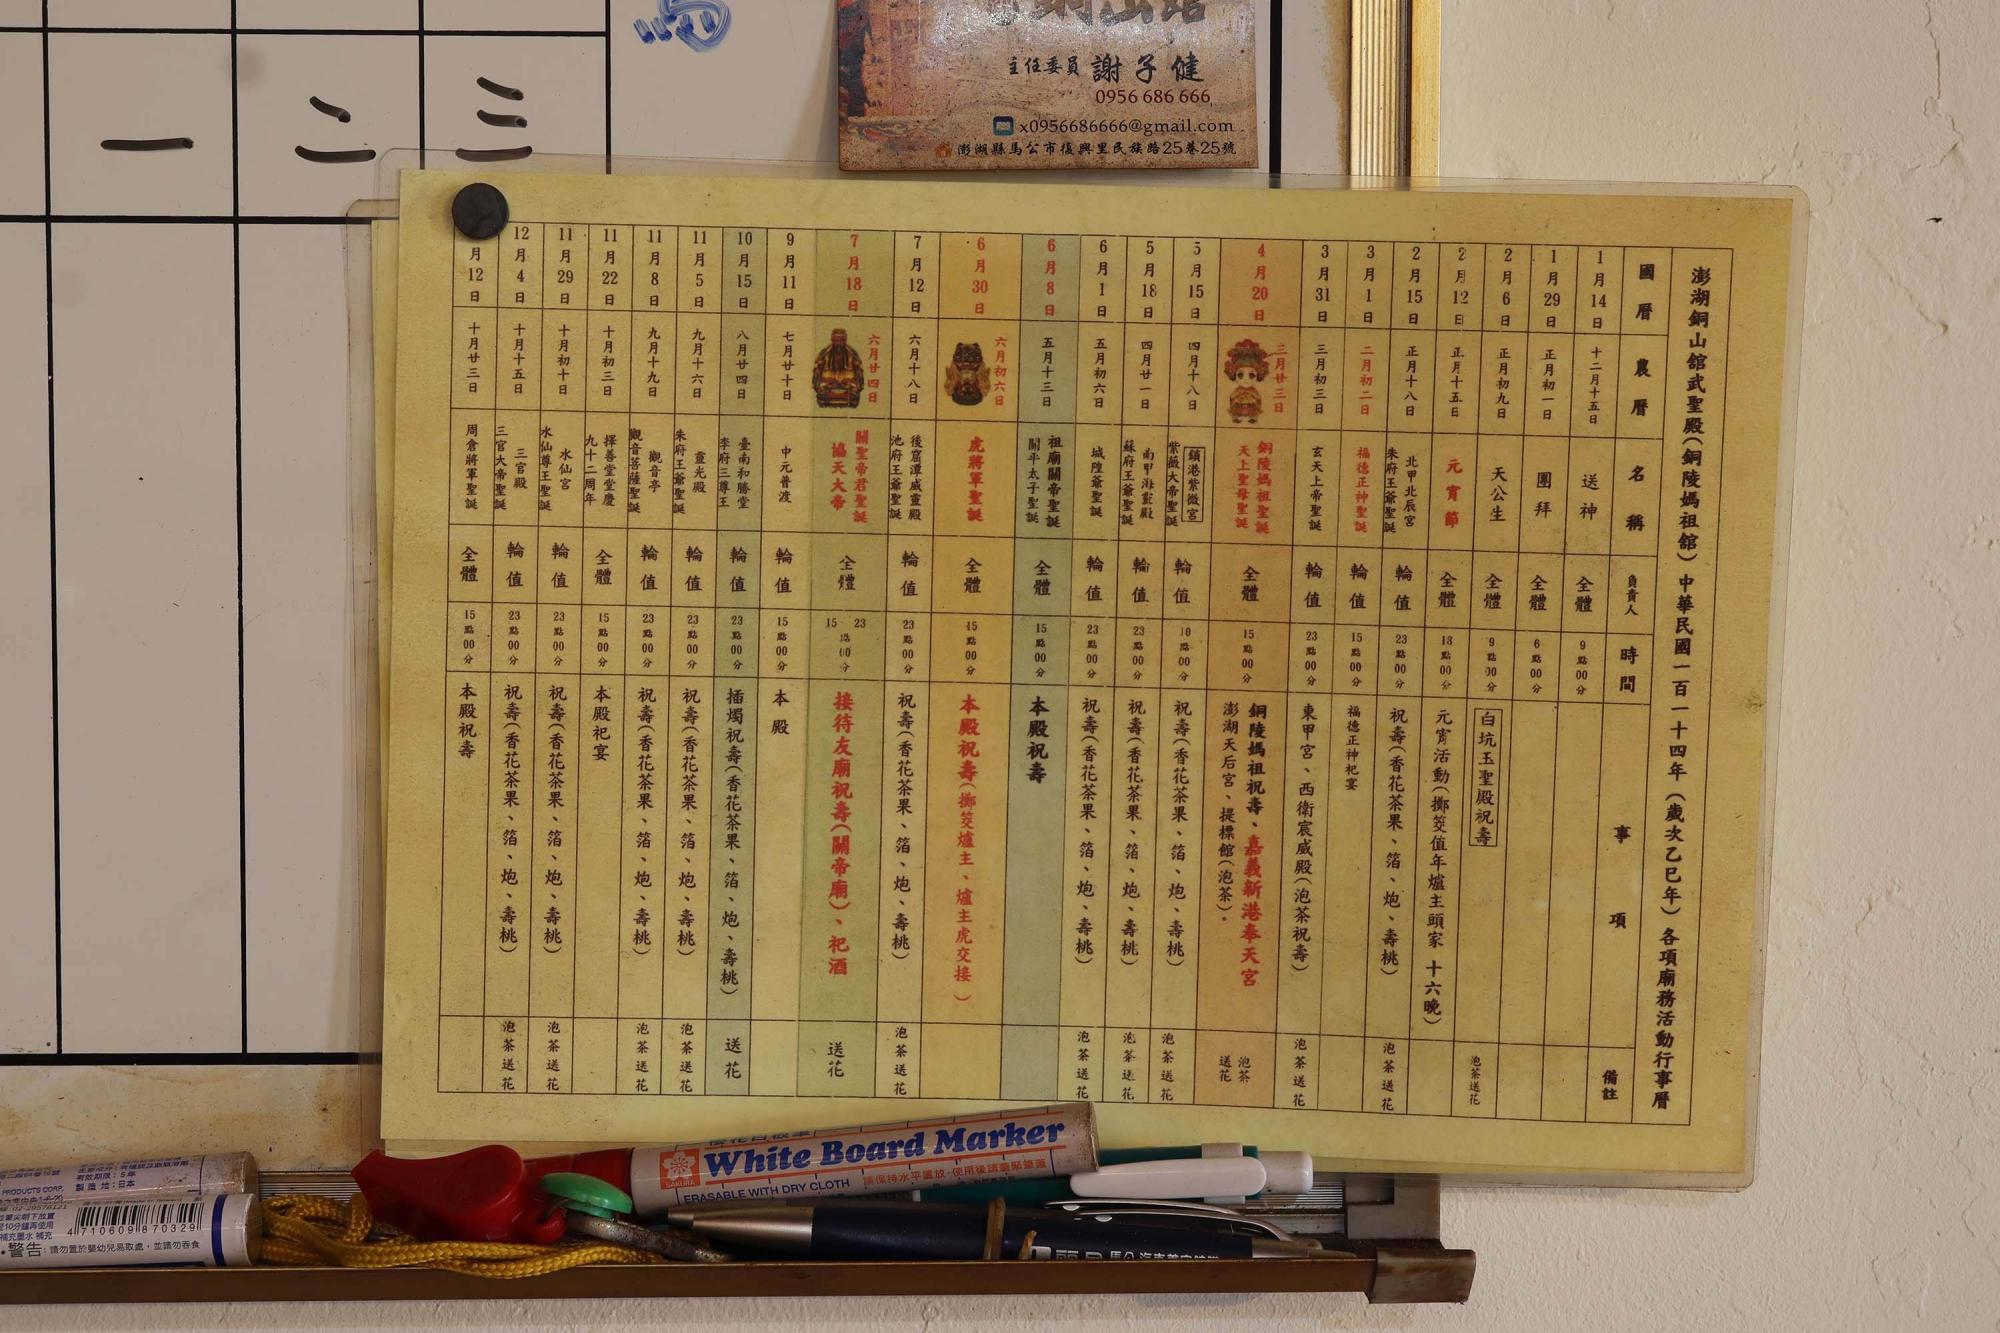 一
二
三
主任委員 謝子健
0956 686 666
x0956686666@gmail.com
澎湖縣馬公市復興里民族路25巷25號
澎湖銅山館武聖殿(銅陵媽祖館)中華民國一百一十四年(歲次乙巳年)各項廟務活動行事曆
國曆 農曆 名稱 負責人 時間 事項 備註
1月14日 十二月十五日 送神 全體 9點00分
1月29日 正月初一日 團拜 全體 6點00分
2月6日 正月初九日 天公生 全體 9點00分 白坑玉聖殿祝壽 泡茶送花
2月12日 正月十五日 元宵節 全體 18點00分 元宵活動(擲筊值年爐主頭家 十六晚)
2月15日 正月十八日 北甲北辰宮 朱府王爺聖誕 輪值 23點00分 祝壽(香花茶果、箔、炮、壽桃) 泡茶送花
3月1日 二月初二日 福德正神聖誕 輪值 15點00分 福德正神祀宴
3月31日 三月初三日 玄天上帝聖誕 輪值 23點00分 東甲宮、西衛宸威殿(泡茶祝壽) 泡茶送花
4月20日 三月廿三日 銅陵媽祖聖誕 天上聖母聖誕 全體 15點00分 銅陵媽祖祝壽、嘉義新港奉天宮 澎湖天后宮、提標館(泡茶)。 泡茶 送花
5月15日 四月十八日 鎖港紫微宮 紫薇大帝聖誕 輪值 10點00分 祝壽(香花茶果、箔、炮、壽桃) 泡茶送花
5月18日 四月廿一日 南甲海靈殿 蘇府王爺聖誕 輪值 23點00分 祝壽(香花茶果、箔、炮、壽桃) 泡茶送花
6月1日 五月初六日 城隍爺聖誕 輪值 23點00分 祝壽(香花茶果、箔、炮、壽桃) 泡茶送花
6月8日 五月十三日 祖廟關帝聖誕 關平太子聖誕 全體 15點00分 本殿祝壽
6月30日 六月初六日 虎將軍聖誕 全體 15點00分 本殿祝壽(擲筊爐主、爐主虎交接)
7月12日 六月十八日 後窟潭威靈殿 池府王爺聖誕 輪值 23點00分 祝壽(香花茶果、箔、炮、壽桃) 泡茶送花
7月18日 六月廿四日 關聖帝君聖誕 協天大帝 全體 15 23點00分 接待友廟祝壽(關帝廟)、祀酒 送花
9月11日 七月廿十日 中元普渡 輪值 15點00分 本殿
10月15日 八月廿四日 臺南和勝堂 李府三尊王 輪值 23點00分 插燭祝壽(香花茶果、箔、炮、壽桃) 送花
11月5日 九月十六日 靈光殿 朱府王爺聖誕 輪值 23點00分 祝壽(香花茶果、箔、炮、壽桃) 泡茶送花
11月8日 九月十九日 觀音亭 觀音菩薩聖誕 輪值 23點00分 祝壽(香花茶果、箔、炮、壽桃) 泡茶送花
11月22日 十月初三日 擇善堂堂慶 九十二周年 全體 15點00分 本殿祀宴
11月29日 十月初十日 水仙宮 水仙尊王聖誕 輪值 23點00分 祝壽(香花茶果、箔、炮、壽桃) 泡茶送花
12月4日 十月十五日 三官殿 三官大帝聖誕 輪值 23點00分 祝壽(香花茶果、箔、炮、壽桃) 泡茶送花
月12日 十月廿三日 周倉將軍聖誕 全體 15點00分 本殿祝壽
SAKURA White Board Marker
ERASABLE WITH DRY CLOTH 請保持水平置放，使用後請蓋緊筆蓋
有效期限：5年
PRODUCTS CORP. 製造地：日本
02-29578121
4710609870329
警告：請勿置於嬰幼兒易取處，並請勿吞食